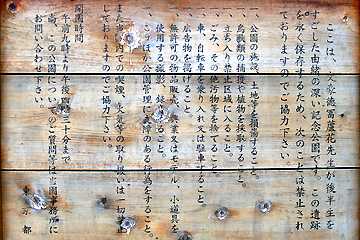 ここは、文豪徳冨蘆花先生が後半生を
すごした由緒の深い記念公園です。この遺跡
を永く保存するため、次のことは禁止され
ておりますのでご協力下さい
一、公園の施設、土地等を損傷すること。
一、鳥獣類の捕獲や植物を採集すること。
一、立ち入り禁止区域に入ること。
一、ごみ、その他汚物等を捨てること。
一、車、自転車を乗り入れ又は駐車すること。
一、広告物を掲げること。
一、無許可の物品販売、興業又はモデル、小道具を
使用する撮影、録音すること。
一、このほか公園管理に支障のある行為をすること。
また当園内での喫煙、火気等の取り扱いは一切禁止
しておりますのでご協力下さい。
開園時間
午前九時より午後四時三十分まで
尚、この公園についてのご質問等は公園事務所に
お問い合わせ下さい。
東京都